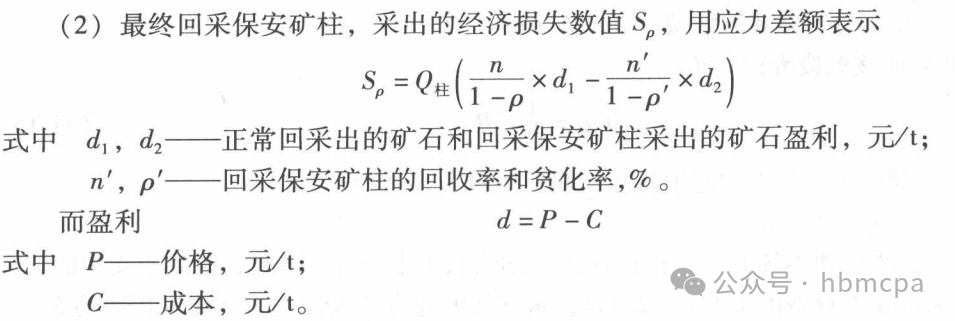 (2) 最终回采保安矿柱，采出的经济损失数值 Sρ，用应力差额表示
Sρ = Q柱(n/(1-ρ) × d₁ - n′/(1-ρ′) × d₂)
式中 d₁，d₂——正常回采出的矿石和回采保安矿柱采出的矿石盈利，元/t；
n′，ρ′——回采保安矿柱的回收率和贫化率,%。
而盈利 d = P - C
式中 P——价格，元/t；
C——成本，元/t。
公众号 · hbmcpa